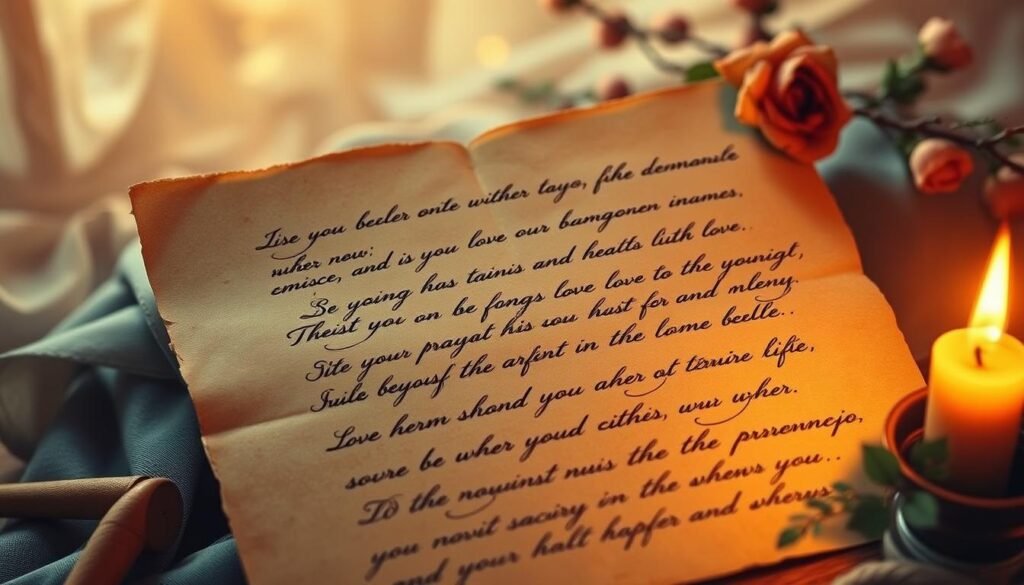 Iise you beeler onte wither tayo, fihe demmande
nuher now;
cmisce, and is you love our bamgonen inames.
Se yoing has tainis and healts luth love..
Theist you on be fongs love love to the younigt,
Site your prayat his sou hust for and mleny.
Juile beyousf the arfent in the lome beelle..
Love herm shond you aher ot teruire lifie,
sovre be wher youd cithis, wur wher.
To the noyuinst nuis the the psrennejo,
you novit sacisy in the whens you..
and your halt hapfer and wherys